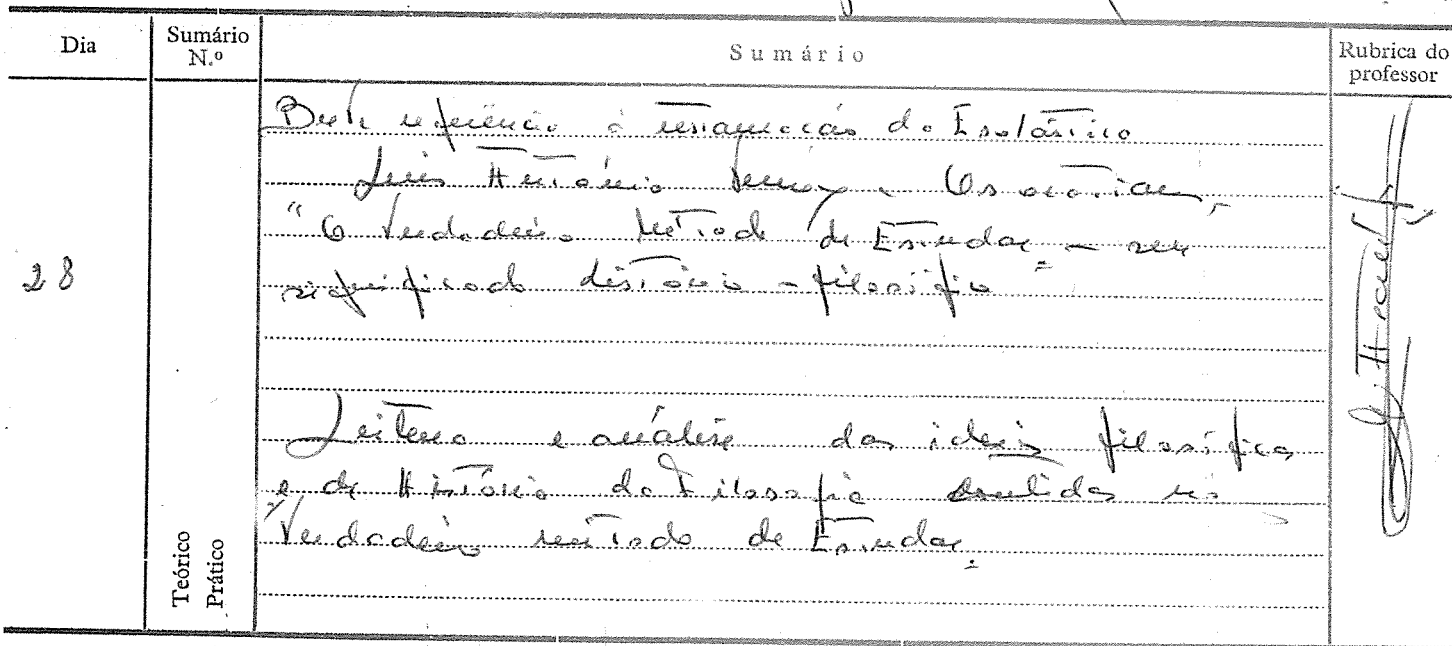 Dia
Sumário N.º
Sumário
Rubrica do professor
28
Breve referência à restauração da Escolástica
Luís António Verney. Os oratorianos,
"O Verdadeiro Método de Estudar" – seu
significado histórico-filosófico
Leitura e análise das ideias filosóficas
e de História da Filosofia contidas no
"Verdadeiro método de Estudar".
Teórico
Prático